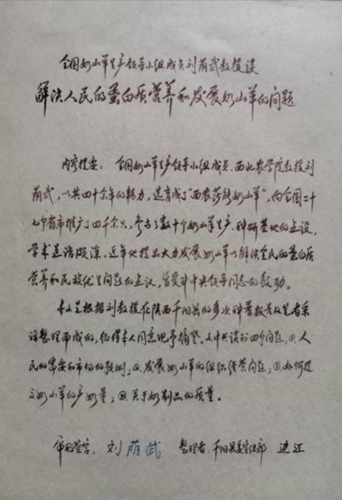 全国奶山羊生产领导小组成员刘荫武教授谈
解决人民的蛋白质营养和发展奶山羊的问题
内容提要：全国奶山羊生产领导小组成员、西北农学院教授刘
荫武，以共四十余年的努力，选育成了“西农莎能奶山羊”，向全国二十
七个省市推广了四千余只，参与了数十个奶山羊生产、科研基地的建设，
学术造诣颇深。近年他提出大力发展奶山羊以解决全民的蛋白质
营养和民族优生问题的主议，曾受到中央领导同志的鼓励。
本文是根据刘教授在陕西千阳县的多次科普报告及笔者采
访整理而成的，征得本人同意现予摘登。文中谈到四个问题，①人
民的需要和市场的预测，②发展奶山羊的组织经营问题，③如何提
高奶山羊的产奶量，④关于奶制品的质量。
审阅签字：刘荫武 整理者：千阳县委宣传部 边江